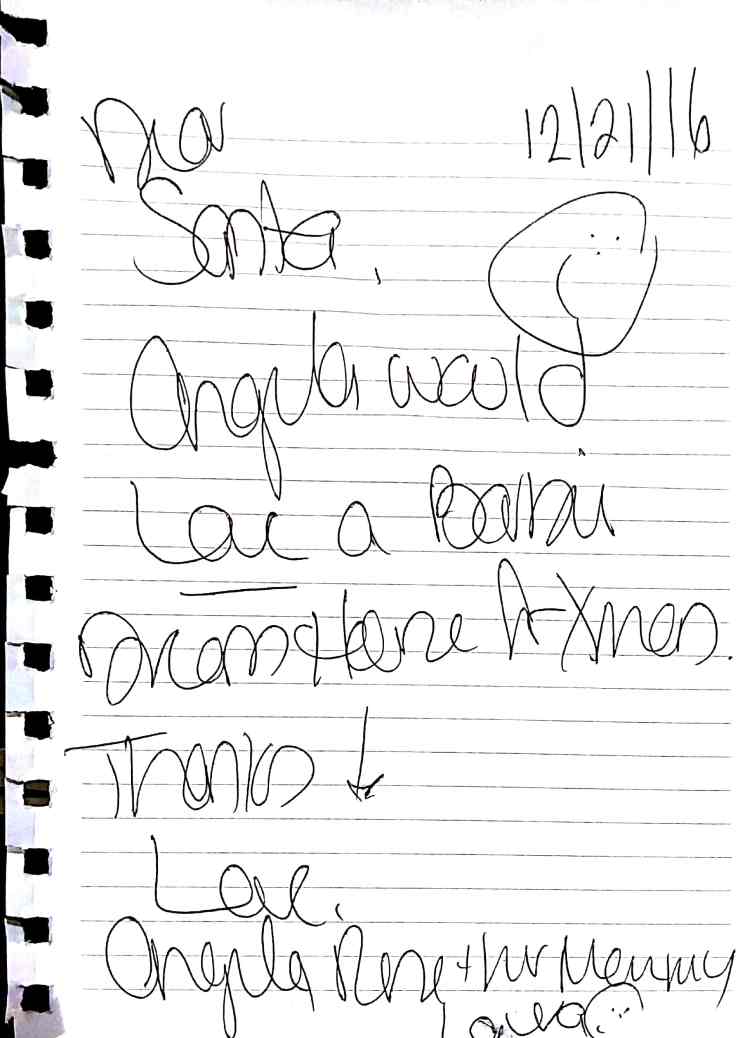 Dear 12/21/16
Santa,
Angela would
Love a Barbie
Dream House for Xmas.
Thanks
Love,
Angela Rose + her Mommy
Laura